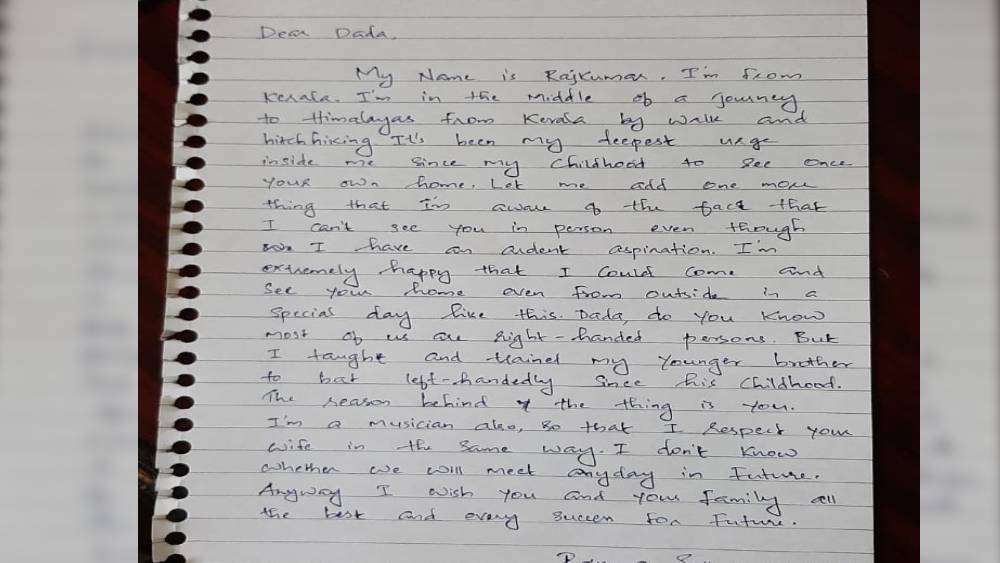 Dear Dada,
My Name is Rajkumar. I'm from
Kerala. I'm in the Middle of a journey
to Himalayas from Kerala by walk and
hitchhiking It's been my deepest urge
inside me since my Childhood to see once
your own home. Let me add one more
thing that I'm aware of the fact that
I can't see you in person even though
I have an ardent aspiration. I'm
extremely happy that I could come and
see your home even from outside in a
special day like this. Dada, do you know
most of us are right-handed persons. But
I taught and trained my younger brother
to bat left-handedly since his childhood.
The reason behind the thing is you.
I'm a musician also, so that I respect your
wife in the same way. I don't know
whether we will meet anyday in Future.
Anyway I wish you and your family all
the best and every success for Future.